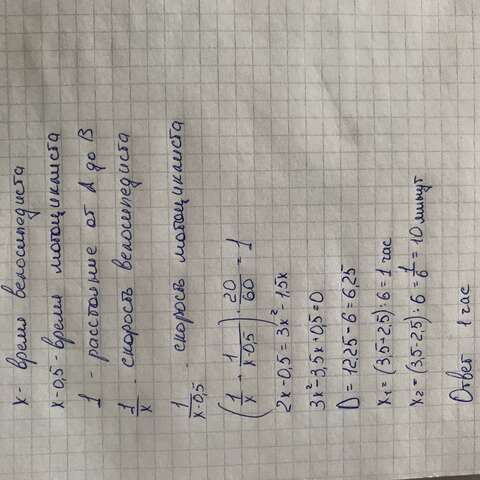 x - время велосипедиста
x-0,5 - время мотоциклиста
1 - расстояние от А до В
1/x - скорость велосипедиста
1/(x-0,5) - скорость мотоциклиста
(1/x + 1/(x-0,5)) · 20/60 = 1
2x-0,5=3x²-1,5x
3x²-3,5x+0,5=0
D=12,25-6=6,25
x₁=(3,5+2,5):6=1 час
x₂=(3,5-2,5):6=1/6=10 минут
Ответ 1 час